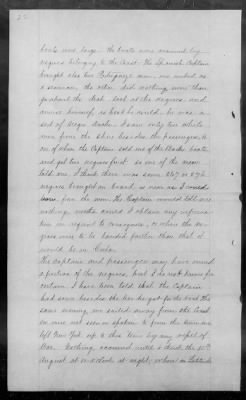 boats were large. The boats were manned by
negroes belonging to the Coast. The Spanish Captain
brought also two Portuguese men, one acted as
a seaman, the other did nothing more than
go about the deck, look at the negroes and
amuse himself, as best he could. he was a
sort of Negro doctor. I saw only two white
men from the shore besides the passengers,
one of whom the Captain sold one of the Boats
and got two negroes for it so one of the men
told me. I think there was some 847 or 876
negroes brought on board as near as I could
learn from the men. The Captain would tell me
nothing, neither could I obtain any informa
tion in regard to ourselves, or when the ne
groes were to be landed further than that it
would be in Cuba.
The Captain and passenger may have owned
a portion of the negroes, but I do not know for
certain. I have been told that the Captain
had some besides the two he got for the boat. The
same evening, we sailed away from the Coast
we were not seen or spoken to from the time we
left New York up to this time by any vessel of
War. Nothing occurred until about the 10th
August at o'clock at night, when in Latitude